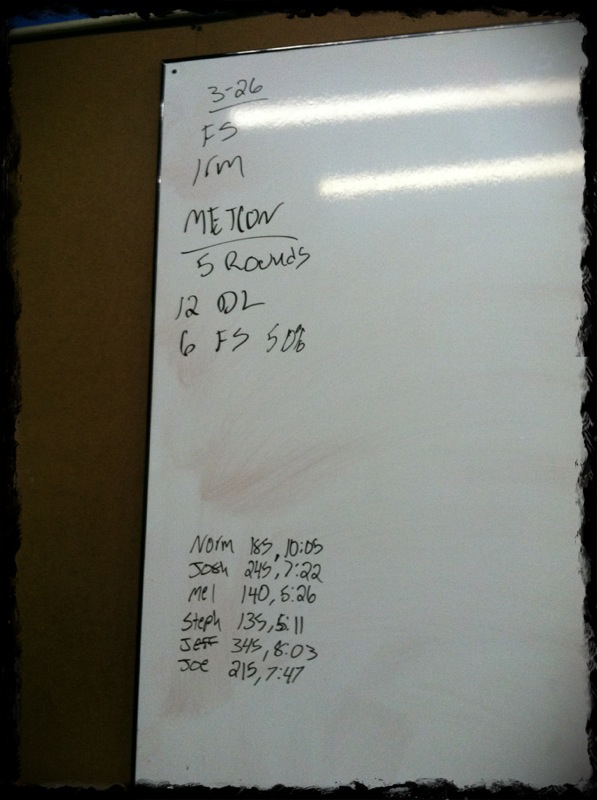 3-26
FS
1rm
METCON
5 Rounds
12 DL
6 FS 50%
Norm 185, 10:05
Josh 245, 7:22
Mel 140, 5:26
Steph 135, 5:11
Jeff 345, 8:03
Joe 215, 7:47